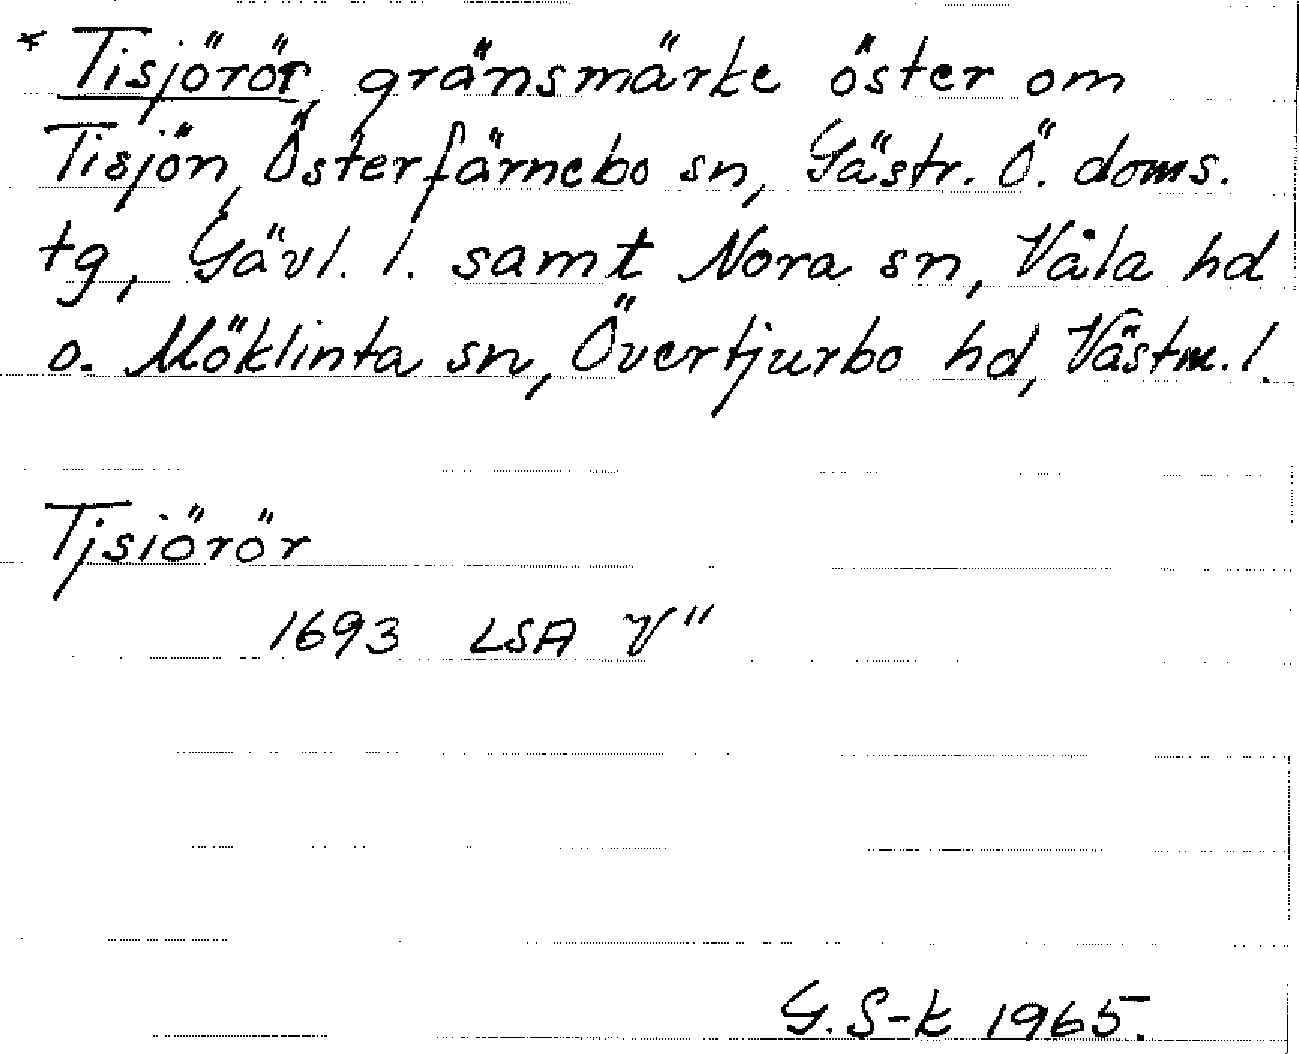 * Tisjörör, gränsmärke öster om
Tisjön, Österfärnebo sn, Gästr. Ö. doms.
tg, Gävl. l. samt Nora sn, Våla hd
o. Möklinta sn, Övertjurbo hd, Västm. l.
Tjsiörör
1693 LSA V"
G. S-k 1965.